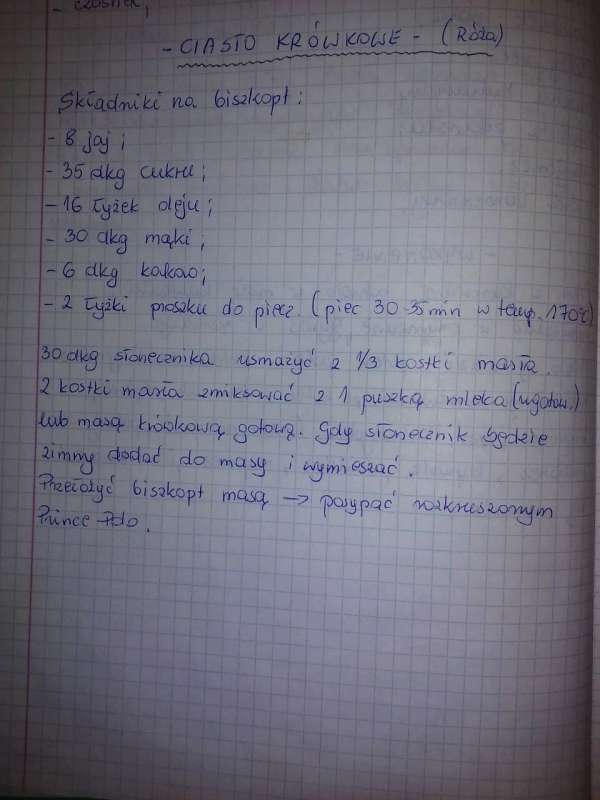 - czosnek;
- CIASTO KRÓWKOWE - (Róża)
Składniki na biszkopt:
- 8 jaj;
- 35 dkg cukru;
- 16 łyżek oleju;
- 30 dkg mąki;
- 6 dkg kakao;
- 2 łyżki proszku do piecz. (piec 30-35min w temp. 170°C)
30 dkg słonecznika usmażyć z 1/3 kostki masła.
2 kostki masła zmiksować z 1 puszką mleka (ugotow.)
lub masą krówkową gotową. Gdy słonecznik będzie
zimny dodać do masy i wymieszać.
Przełożyć biszkopt masą → posypać rozkruszonym
Prince Polo.